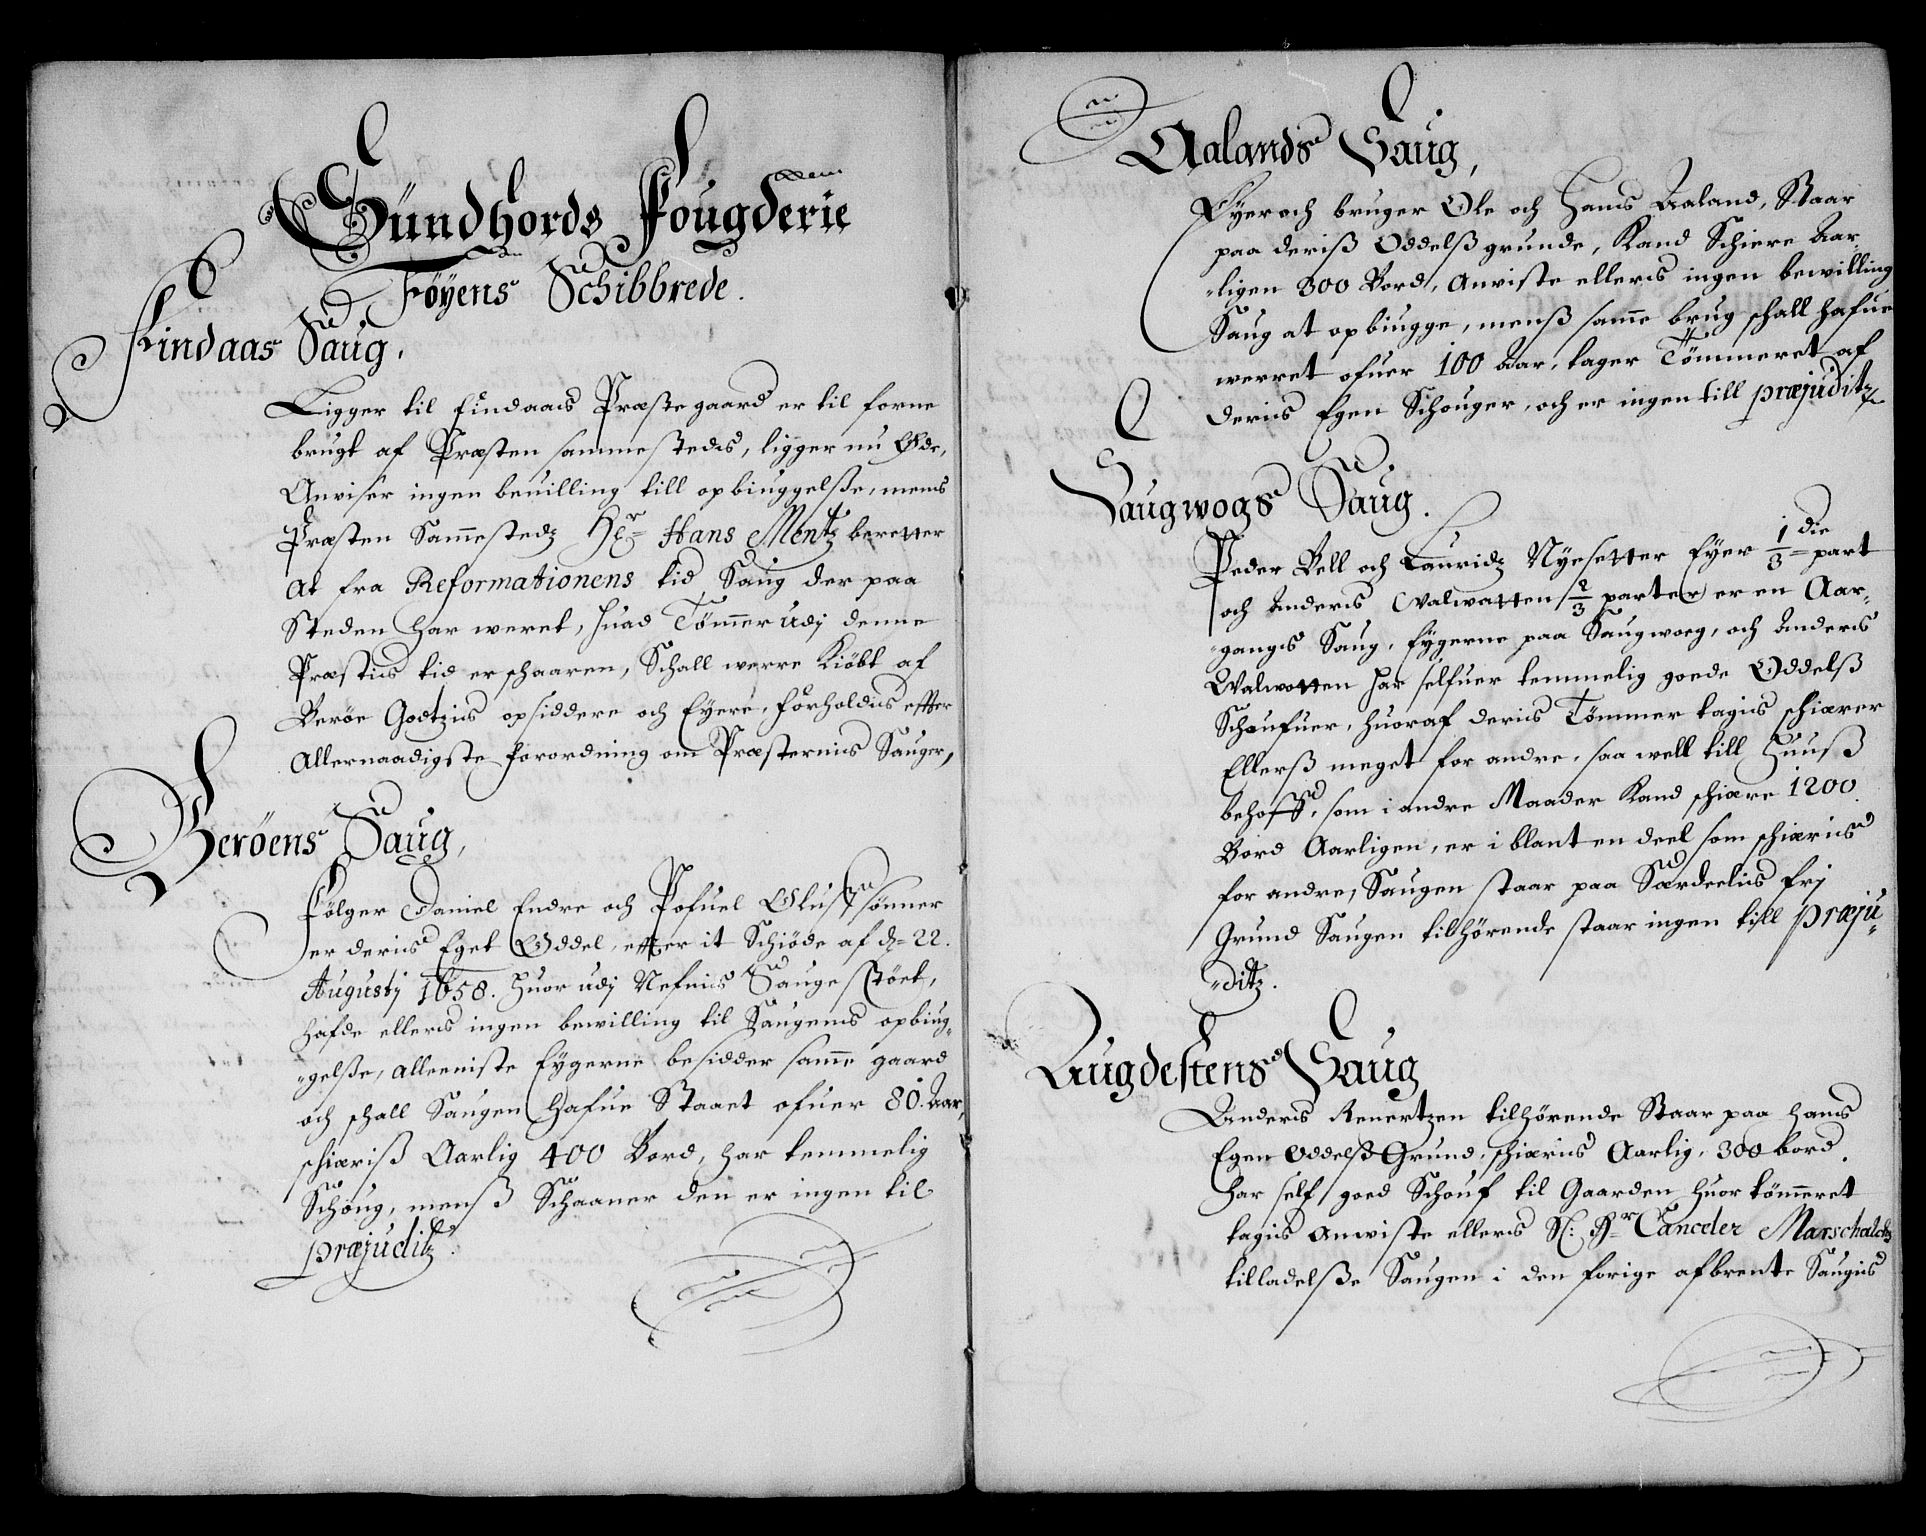 Sündhords Fougderie
Föyens Schibbrede.
Findaas Saug,
Ligger til Findaas Præstegaard er til forne
brugt af Præsten sammesteds, ligger nu Øde,
Anviser ingen beuilling till opbiuggelsse, mens
Præsten Sammestedz Her Hans Mentz beretter
At fra Reformationens tid Saug der paa
Steden har weret, huad Tömmer udj denne
Præstis tid er schaaren, Schall werre Kiöbt af
Beröe Godtzis opsiddere och Eyere, forholdis effter
Allernaadigste forordning om Præsternis Sauger,
Beröens Saug,
Fölger Daniel Endre och Pofuel Olufsönner
er deris Eget Oddel, effter it Schiöde af d= 22.
Augustj 1658. huor udj Nefnis Saugestöet,
hafde ellers ingen bewilling til Saugens opbiug-
gelsse, alleeniste Eygerne besidder samme gaard
och schall Saugen hafue Staaet ofuer 80. Aar,
schiæriss Aarlig 400 Bord, har temmelig
Schoug, menss Schaaner den er ingen til
præjuditz.
Aalands Saug,
Eyer och bruger Ole och Hans Aaland, Staar
paa deriss Oddelss grunde, Kand Schiere Aar
ligen 300 Bord, Anviste ellers ingen bewilling
Saug at opbiugge, menss samme brug schall hafue
werret ofuer 100 Aar, tager Tömmeret af
deris Egen Schouger, och er ingen till præjuditz
Saugwogs Saug.
Peder Bell och Lauridz Nyesetter Eyer 1/3 die part
och Anders Walwatten 2/3 parter er en Aar-
gangs Saug, Eygerne paa Saugwoeg, och Anders
Walwatten har selfuer temmelig goede Oddelss
Schoufuer, huoraf deris Tömmer tagis schiærer
Ellerss meget for andre, saa well till Huuss
behoff, som i andre Maader Kand schiære 1200
Bord Aarligen, er i blant en deel som schiæris
for andre, Saugen staar paa Særdeelis frj
Grund Saugen tilhörende staar ingen till præju
ditz.
Augdestens Saug
Anders Renertzen tilhörende Staar paa hans
Egen Oddelss Grund, schiæris Aarlig, 300 bord.
har self goed Schouf til Gaarden huor tömmeret
tagis Anviste ellers Sl: Hr Canceler Marschalchs
tilladelsse Saugen i den forige afbrente Saugis